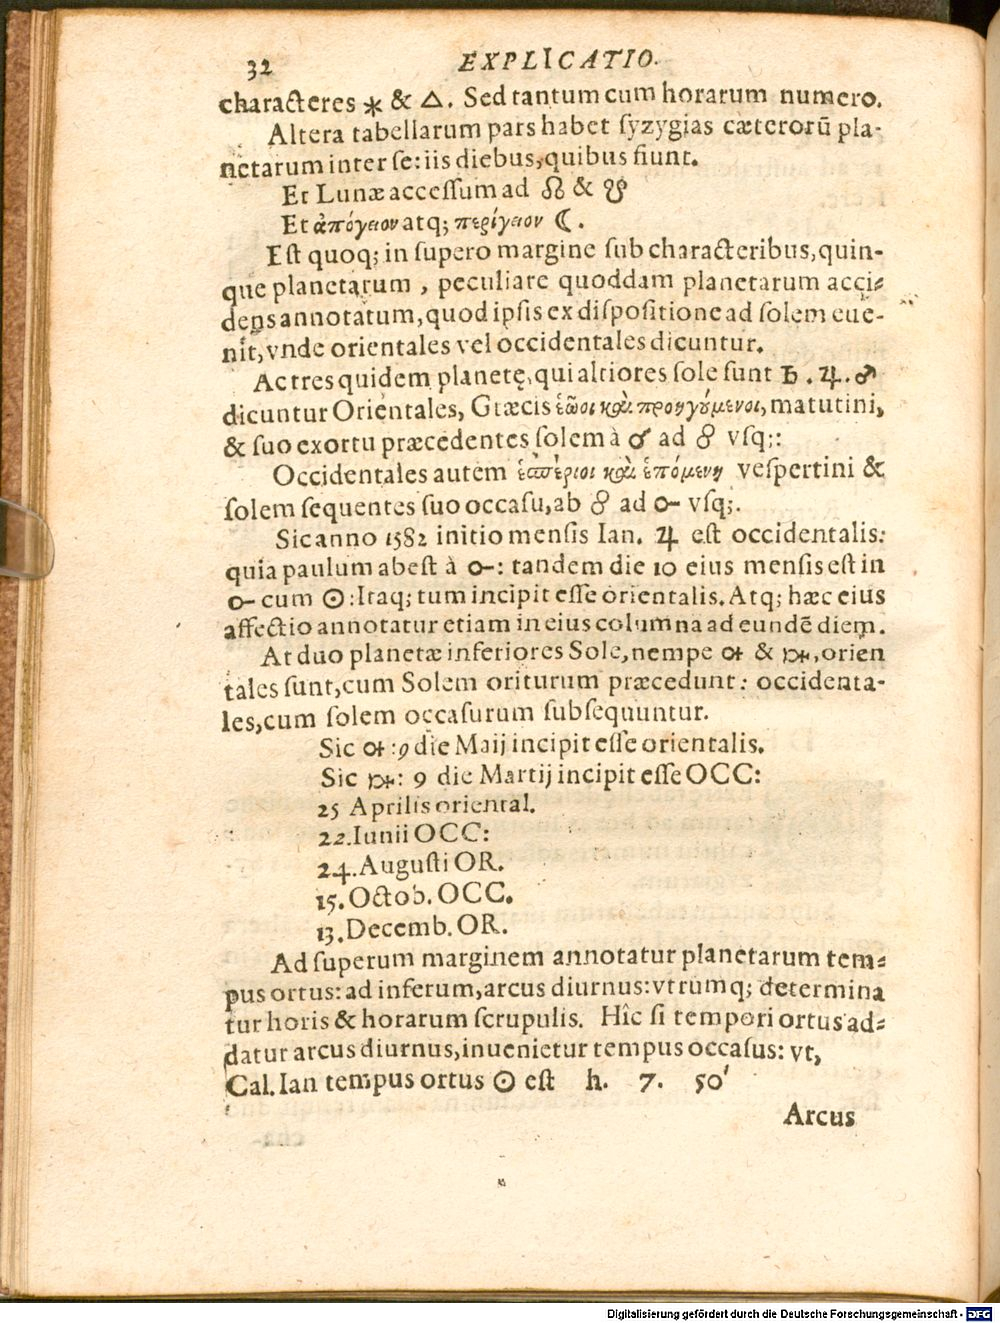 32 EXPLICATIO.
characteres ⚹ & △. Sed tantum cum horarum numero.
Altera tabellarum pars habet ſyzygias cæterorū pla-
netarum inter ſe: iis diebus, quibus fiunt.
Et Lunæ acceſſum ad ☊ & ☋
Et ἀπόγειον atq; περίγειον ☾.
Eſt quoq; in ſupero margine ſub characteribus, quin-
que planetarum , peculiare quoddam planetarum acci-
dens annotatum, quod ipſis ex diſpoſitione ad ſolem eue-
nit, vnde orientales vel occidentales dicuntur.
Ac tres quidem planetę, qui altiores ſole ſunt ♄ . ♃ . ♂
dicuntur Orientales, Græcis ἑῶοι καὶ προηγούμενοι, matutini,
& ſuo exortu præcedentes ſolem à ☌ ad ☍ vſq;:
Occidentales autem ἑσπέριοι καὶ ἑπόμενη veſpertini &
ſolem ſequentes ſuo occaſu, ab ☍ ad ☌ vſq;.
Sic anno 1582 initio menſis Ian. ♃ eſt occidentalis:
quia paulum abeſt à ☌: tandem die 10 eius menſis eſt in
☌ cum ☉: Itaq; tum incipit eſſe orientalis. Atq; hæc eius
affectio annotatur etiam in eius columna ad eundē diem.
At duo planetæ inferiores Sole, nempe ♀ & ☿, orien
tales ſunt, cum Solem oriturum præcedunt: occidenta-
les, cum ſolem occaſurum ſubſequuntur.
Sic ♀ : 9 die Maij incipit eſſe orientalis.
Sic ☿: 9 die Martij incipit eſſe OCC:
25 Aprilis oriental.
22. Iunii OCC:
24. Auguſti OR.
15. Octob. OCC.
13. Decemb. OR.
Ad ſuperum marginem annotatur planetarum tem-
pus ortus: ad inferum, arcus diurnus: vtrumq; determina
tur horis & horarum ſcrupulis. Hîc ſi tempori ortus ad-
datur arcus diurnus, inuenietur tempus occaſus: vt,
Cal. Ian tempus ortus ☉ eſt h. 7. 50'
Arcus
Digitalisierung gefördert durch die Deutsche Forschungsgemeinschaft - DFG